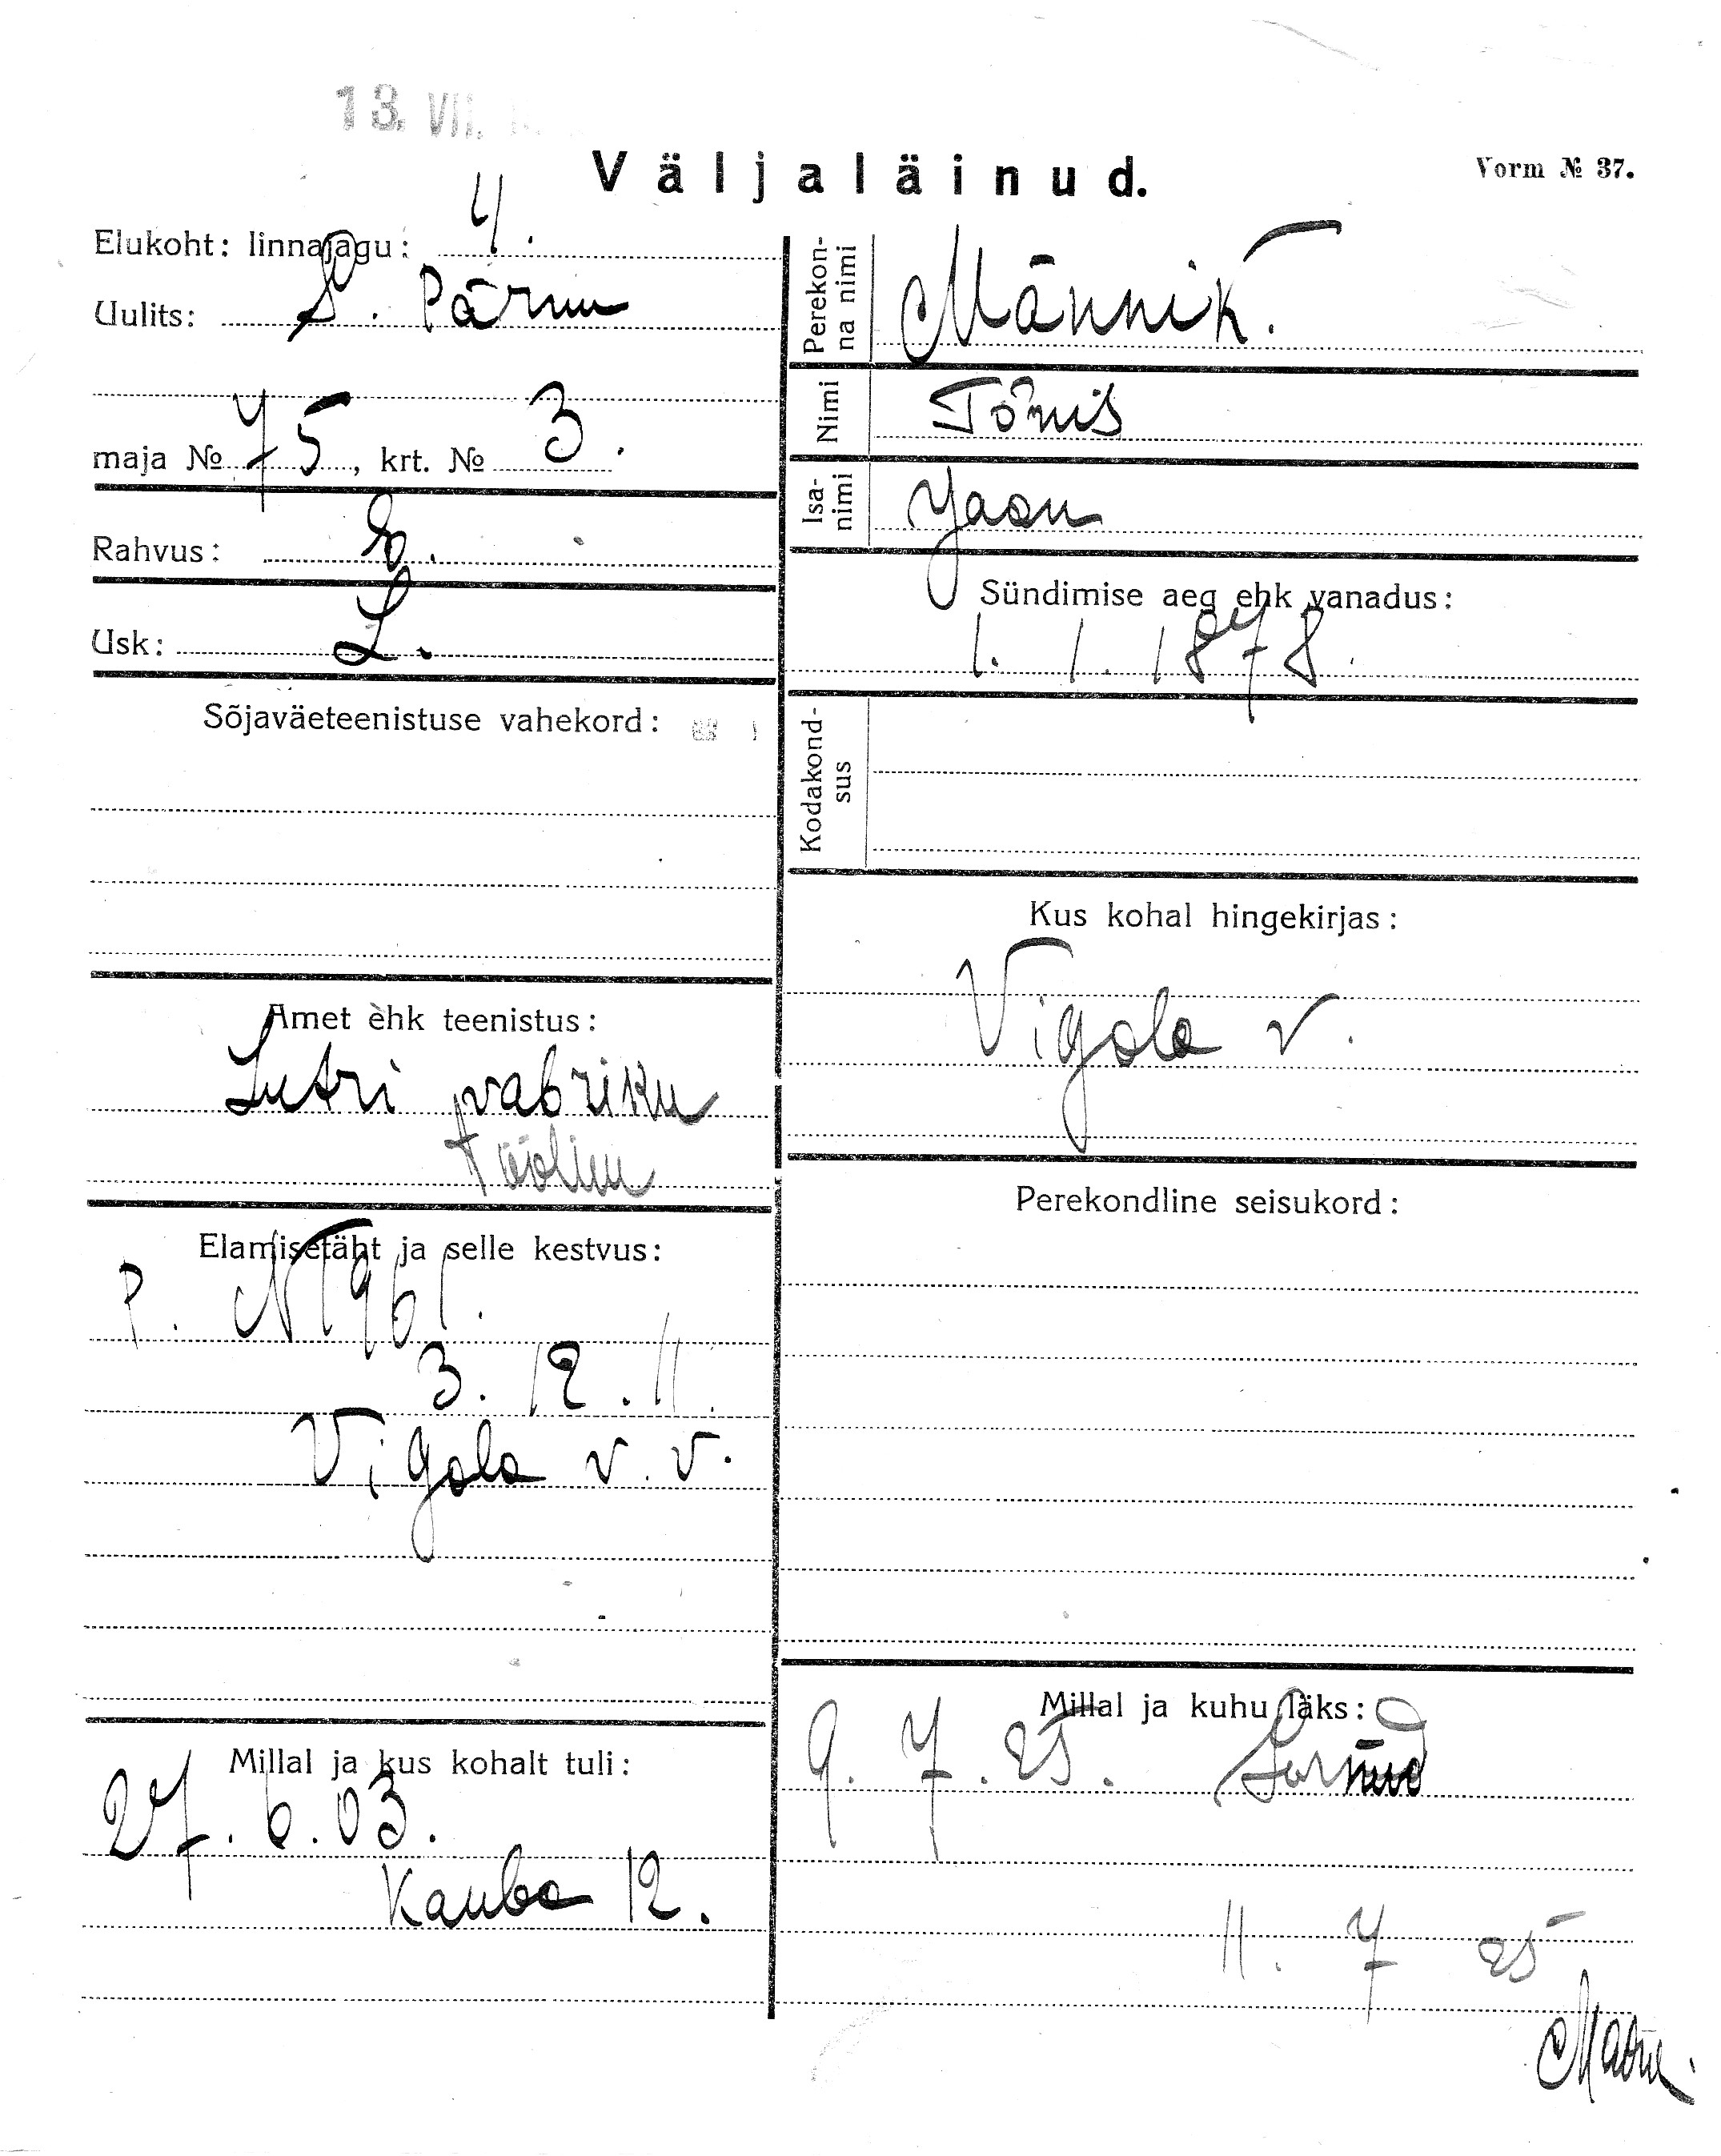 13. VII.
Väljaläinud.
Vorm № 37.
Elukoht: linnajagu: 4.
Uulits: S. Pärnu
maja № 75, krt. № 3.
Rahvus: E.
Usk: L.
Sõjaväeteenistuse vahekord:
Amet ehk teenistus:
Lutri vabriku
tööline
Elamisetäht ja selle kestvus:
P. N 1961.
3. 12. 11.
Vigala v. v.
Millal ja kus kohalt tuli:
27. 6. 03.
Kauba 12.
Perekonna nimi Männik.
Nimi Tõnis
Isanimi Jaan
Sündimise aeg ehk vanadus:
1. 1. 1878.
Kodakondsus
Kus kohal hingekirjas:
Vigala v.
Perekondline seisukord:
Millal ja kuhu läks:
9. 7. 25. Surnud
11. 7 25